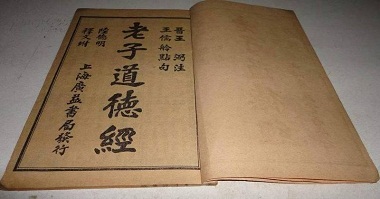 晉王弼注
王儒舲點句
老子道德經
陸德明
釋文附
上海廣益書局發行